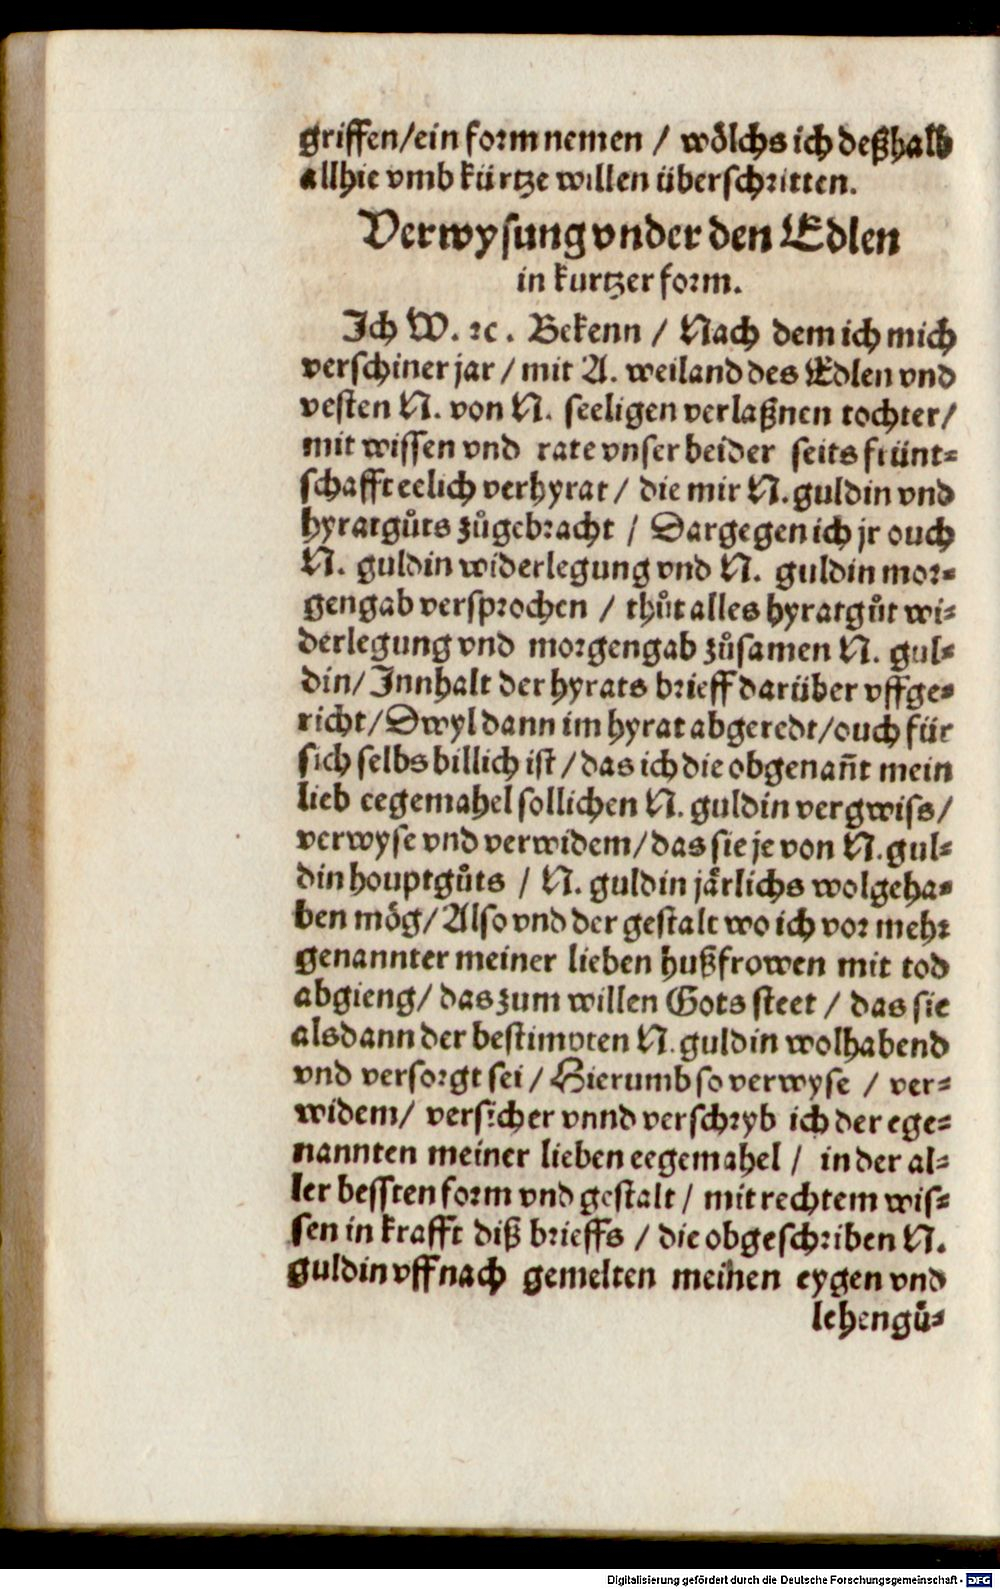 griffen/ein form nemen / wölchs ich deßhalb
allhie vmb kürtze willen überschritten.
Verwysung vnder den Edlen
in kurtzer form.
Ich W. ꝛc. Bekenn / Nach dem ich mich
verschiner jar / mit A. weiland des Edlen vnd
vesten N. von N. seeligen verlaßnen tochter/
mit wissen vnd rate vnser beider seits frünt⸗
schafft eelich verhyrat / die mir N. guldin vnd
hyratgůts zůgebracht / Dargegen ich jr ouch
N. guldin widerlegung vnd N. guldin mor⸗
gengab versprochen / thůt alles hyratgůt wi⸗
derlegung vnd morgengab zůsamen N. gul⸗
din/ Innhalt der hyrats brieff darüber vffge⸗
richt/ Dwyl dann im hyrat abgeredt/ouch für
sich selbs billich ist / das ich die obgenañt mein
lieb eegemahel sollichen N. guldin vergwiss/
verwyse vnd verwidem/das sie je von N. gul⸗
din houptgůts / N. guldin järlichs wolgeha⸗
ben mög/ Also vnd der gestalt wo ich vor mehr
genannter meiner lieben hußfrowen mit tod
abgieng/ das zum willen Gots steet / das sie
alsdann der bestimpten N. guldin wolhabend
vnd versorgt sei / Hierumb so verwyse / ver⸗
widem/ versicher vnnd verschryb ich der ege⸗
nannten meiner lieben eegemahel / in der al⸗
ler bessten form vnd gestalt / mit rechtem wis⸗
sen in krafft diß brieffs / die obgeschriben N.
guldin vff nach gemelten meinen eygen vnd
lehengů⸗
Digitalisierung gefördert durch die Deutsche Forschungsgemeinschaft - DFG